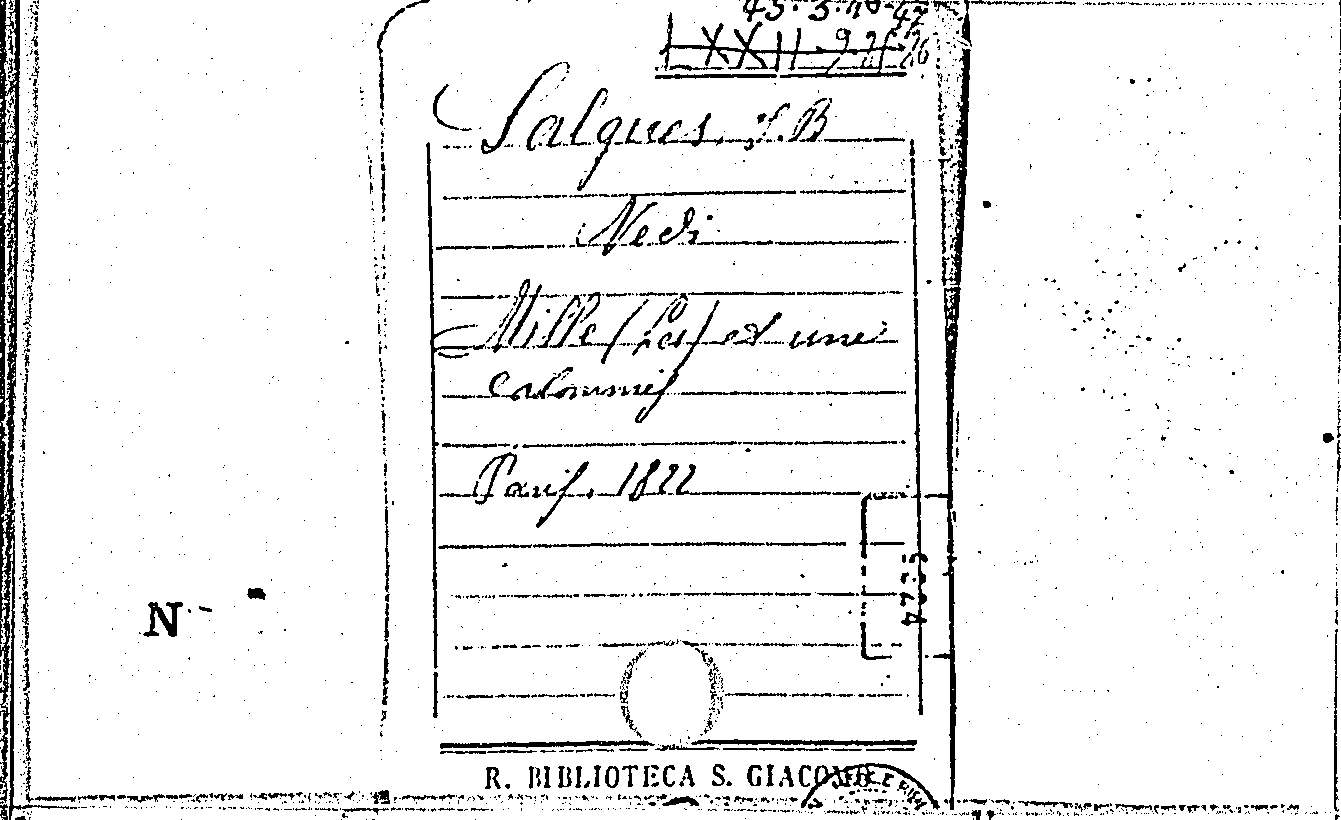 45.5.46-47
LXXII-9-25-26
Salques, J.B
Vedi
Mille (Les) et une
calomnies
Paris, 1822
N
R. BIBLIOTECA S. GIACOMO